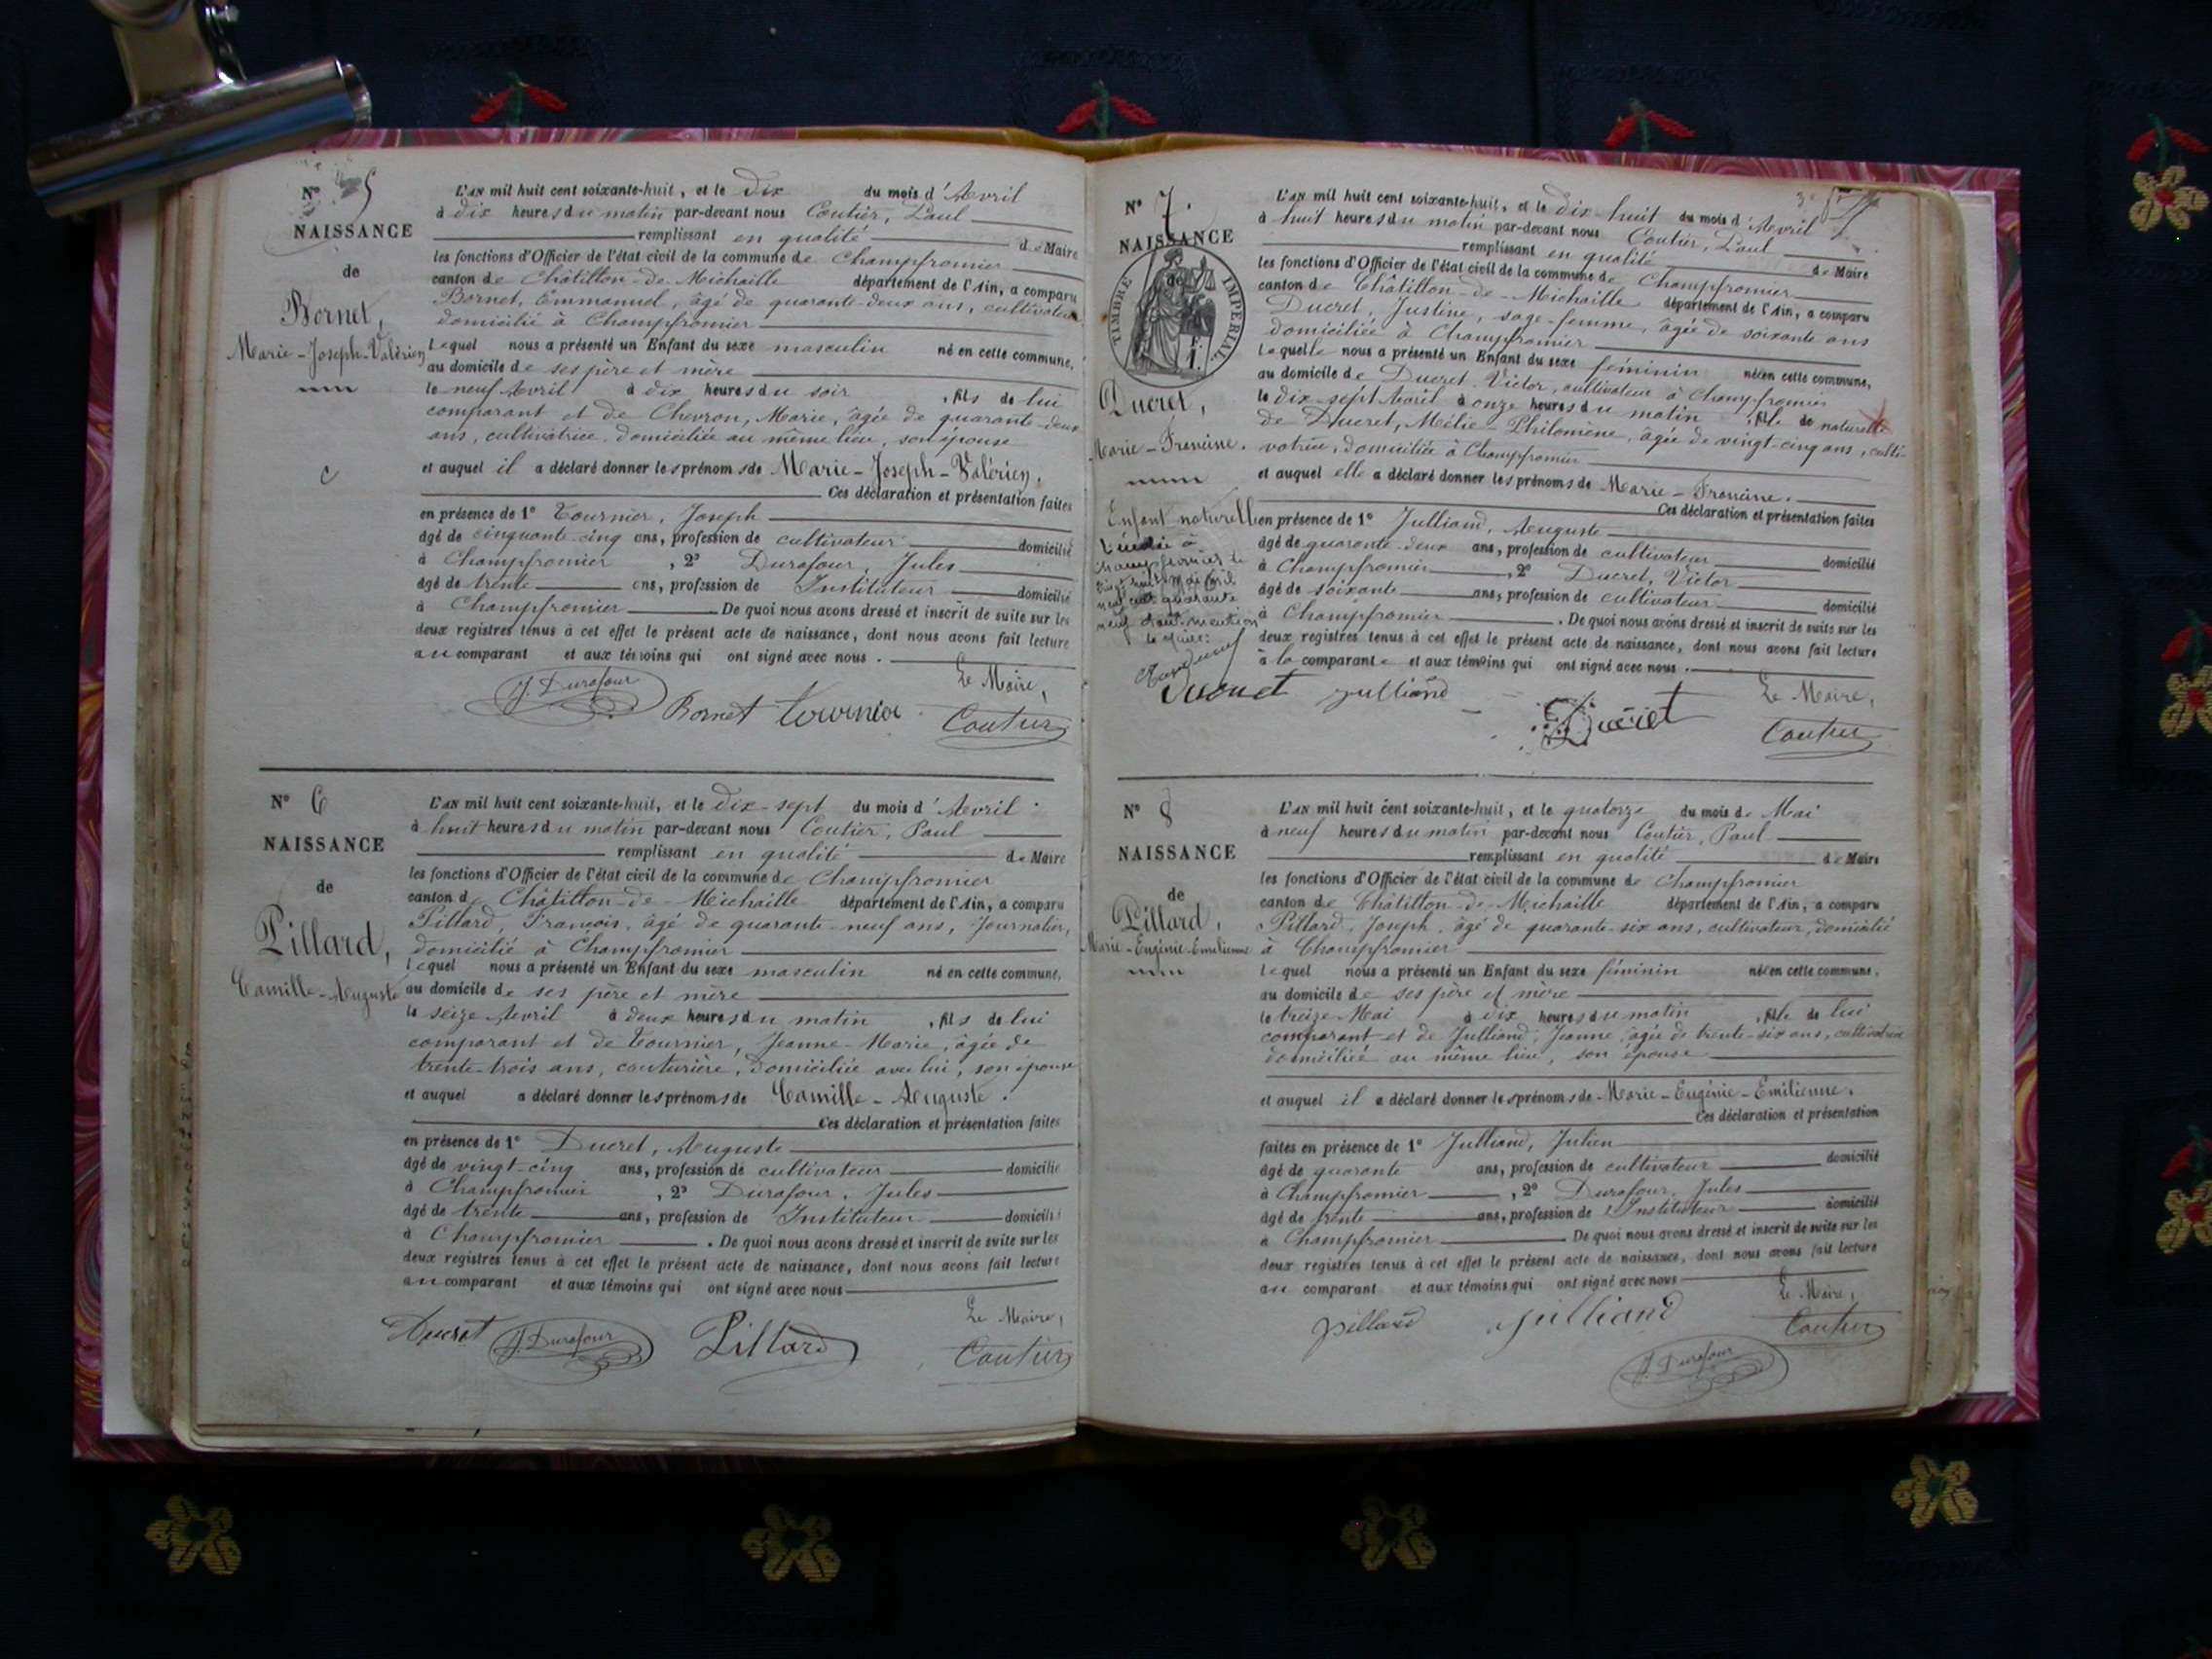 N° 5
NAISSANCE
de
Bornet,
Marie-Joseph-Valérien
L'an mil huit cent soixante-huit, et le dix du mois d'Avril
à dix heures du matin par-devant nous Coutier, Paul
remplissant en qualité de Maire
les fonctions d'Officier de l'état civil de la commune de Champfromier
canton de Châtillon-de-Michaille département de l'Ain, a comparu
Bornet, Emmanuel, âgé de quarante-deux ans, cultivateur
domicilié à Champfromier
lequel nous a présenté un Enfant du sexe masculin né en cette commune,
au domicile de ses père et mère
le neuf Avril à dix heures du soir, fils de lui
comparant et de Chevron, Marie, âgée de quarante-deux
ans, cultivatrice, domiciliée au même lieu, son épouse
et auquel il a déclaré donner les prénoms de Marie-Joseph-Valérien.
Ces déclaration et présentation faites
en présence de 1° Tournier, Joseph
âgé de cinquante-cinq ans, profession de cultivateur domicilié
à Champfromier, 2° Durafour, Jules
âgé de trente ans, profession de Instituteur domicilié
à Champfromier. De quoi nous avons dressé et inscrit de suite sur les
deux registres tenus à cet effet le présent acte de naissance, dont nous avons fait lecture
au comparant et aux témoins qui ont signé avec nous.
Le Maire,
J. Durafour Bornet tournier Coutier
N° 6
NAISSANCE
de
Pillard,
Camille-Auguste
L'an mil huit cent soixante-huit, et le dix-sept du mois d'Avril
à huit heures du matin par-devant nous Coutier, Paul
remplissant en qualité de Maire
les fonctions d'Officier de l'état civil de la commune de Champfromier
canton de Châtillon-de-Michaille département de l'Ain, a comparu
Pillard, François, âgé de quarante-neuf ans, Journalier,
domicilié à Champfromier
lequel nous a présenté un Enfant du sexe masculin né en cette commune,
au domicile de ses père et mère
le seize Avril à deux heures du matin, fils de lui
comparant et de Tournier, Jeanne-Marie, âgée de
trente-trois ans, couturière, domiciliée avec lui, son épouse
et auquel a déclaré donner les prénoms de Camille-Auguste.
Ces déclaration et présentation faites
en présence de 1° Ducret, Auguste
âgé de vingt-cinq ans, profession de cultivateur domicilié
à Champfromier, 2° Durafour, Jules
âgé de trente ans, profession de Instituteur domicilié
à Champfromier. De quoi nous avons dressé et inscrit de suite sur les
deux registres tenus à cet effet le présent acte de naissance, dont nous avons fait lecture
au comparant et aux témoins qui ont signé avec nous
Le Maire,
Ducret J. Durafour Pillard Coutier
N° 7.
NAISSANCE
de
TIMBRE IMPERIAL
Ducret,
Marie-Francine.
Enfant naturelle
Décédée à
Champfromier le
vingt huit Mai mil
neuf cent quarante
neuf dont mention
le Maire:
L'an mil huit cent soixante-huit, et le dix-huit du mois d'Avril
à huit heures du matin par-devant nous Coutier, Paul
remplissant en qualité de Maire
les fonctions d'Officier de l'état civil de la commune de Champfromier
canton de Châtillon-de-Michaille département de l'Ain, a comparu
Ducret, Justine, sage-femme, âgée de soixante ans
domiciliée à Champfromier
laquelle nous a présenté un Enfant du sexe féminin née en cette commune,
au domicile de Ducret, Victor, cultivateur à Champfromier
le dix-sept Avril à onze heures du matin, fille de naturelle
de Ducret, Mélie-Philomène, âgée de vingt-cinq ans, culti-
vatrice, domiciliée à Champfromier
et auquel elle a déclaré donner les prénoms de Marie-Francine.
Ces déclaration et présentation faites
en présence de 1° Julliand, Auguste
âgé de quarante-deux ans, profession de cultivateur domicilié
à Champfromier, 2° Ducret, Victor
âgé de soixante ans, profession de cultivateur domicilié
à Champfromier. De quoi nous avons dressé et inscrit de suite sur les
deux registres tenus à cet effet le présent acte de naissance, dont nous avons fait lecture
à la comparante et aux témoins qui ont signé avec nous.
Le Maire,
julliand Ducret Coutier
N° 8
NAISSANCE
de
Pillard,
Marie-Eugénie-Emilienne
L'an mil huit cent soixante-huit, et le quatorze du mois de Mai
à neuf heures du matin par-devant nous Coutier, Paul
remplissant en qualité de Maire
les fonctions d'Officier de l'état civil de la commune de Champfromier
canton de Châtillon-de-Michaille département de l'Ain, a comparu
Pillard, Joseph, âgé de quarante-six ans, cultivateur, domicilié
à Champfromier
lequel nous a présenté un Enfant du sexe féminin née en cette commune,
au domicile de ses père et mère
le treize Mai à dix heures du matin, fille de lui
comparant et de Julliand, Jeanne, âgée de trente-six ans, cultivatrice
domiciliée au même lieu, son épouse
et auquel il a déclaré donner les prénoms de Marie-Eugénie-Emilienne.
Ces déclaration et présentation
faites en présence de 1° Julliand, Julien
âgé de quarante ans, profession de cultivateur domicilié
à Champfromier, 2° Durafour, Jules
âgé de trente ans, profession de Instituteur domicilié
à Champfromier. De quoi nous avons dressé et inscrit de suite sur les
deux registres tenus à cet effet le présent acte de naissance, dont nous avons fait lecture
au comparant et aux témoins qui ont signé avec nous
Le Maire,
pillard julliand Coutier
J. Durafour